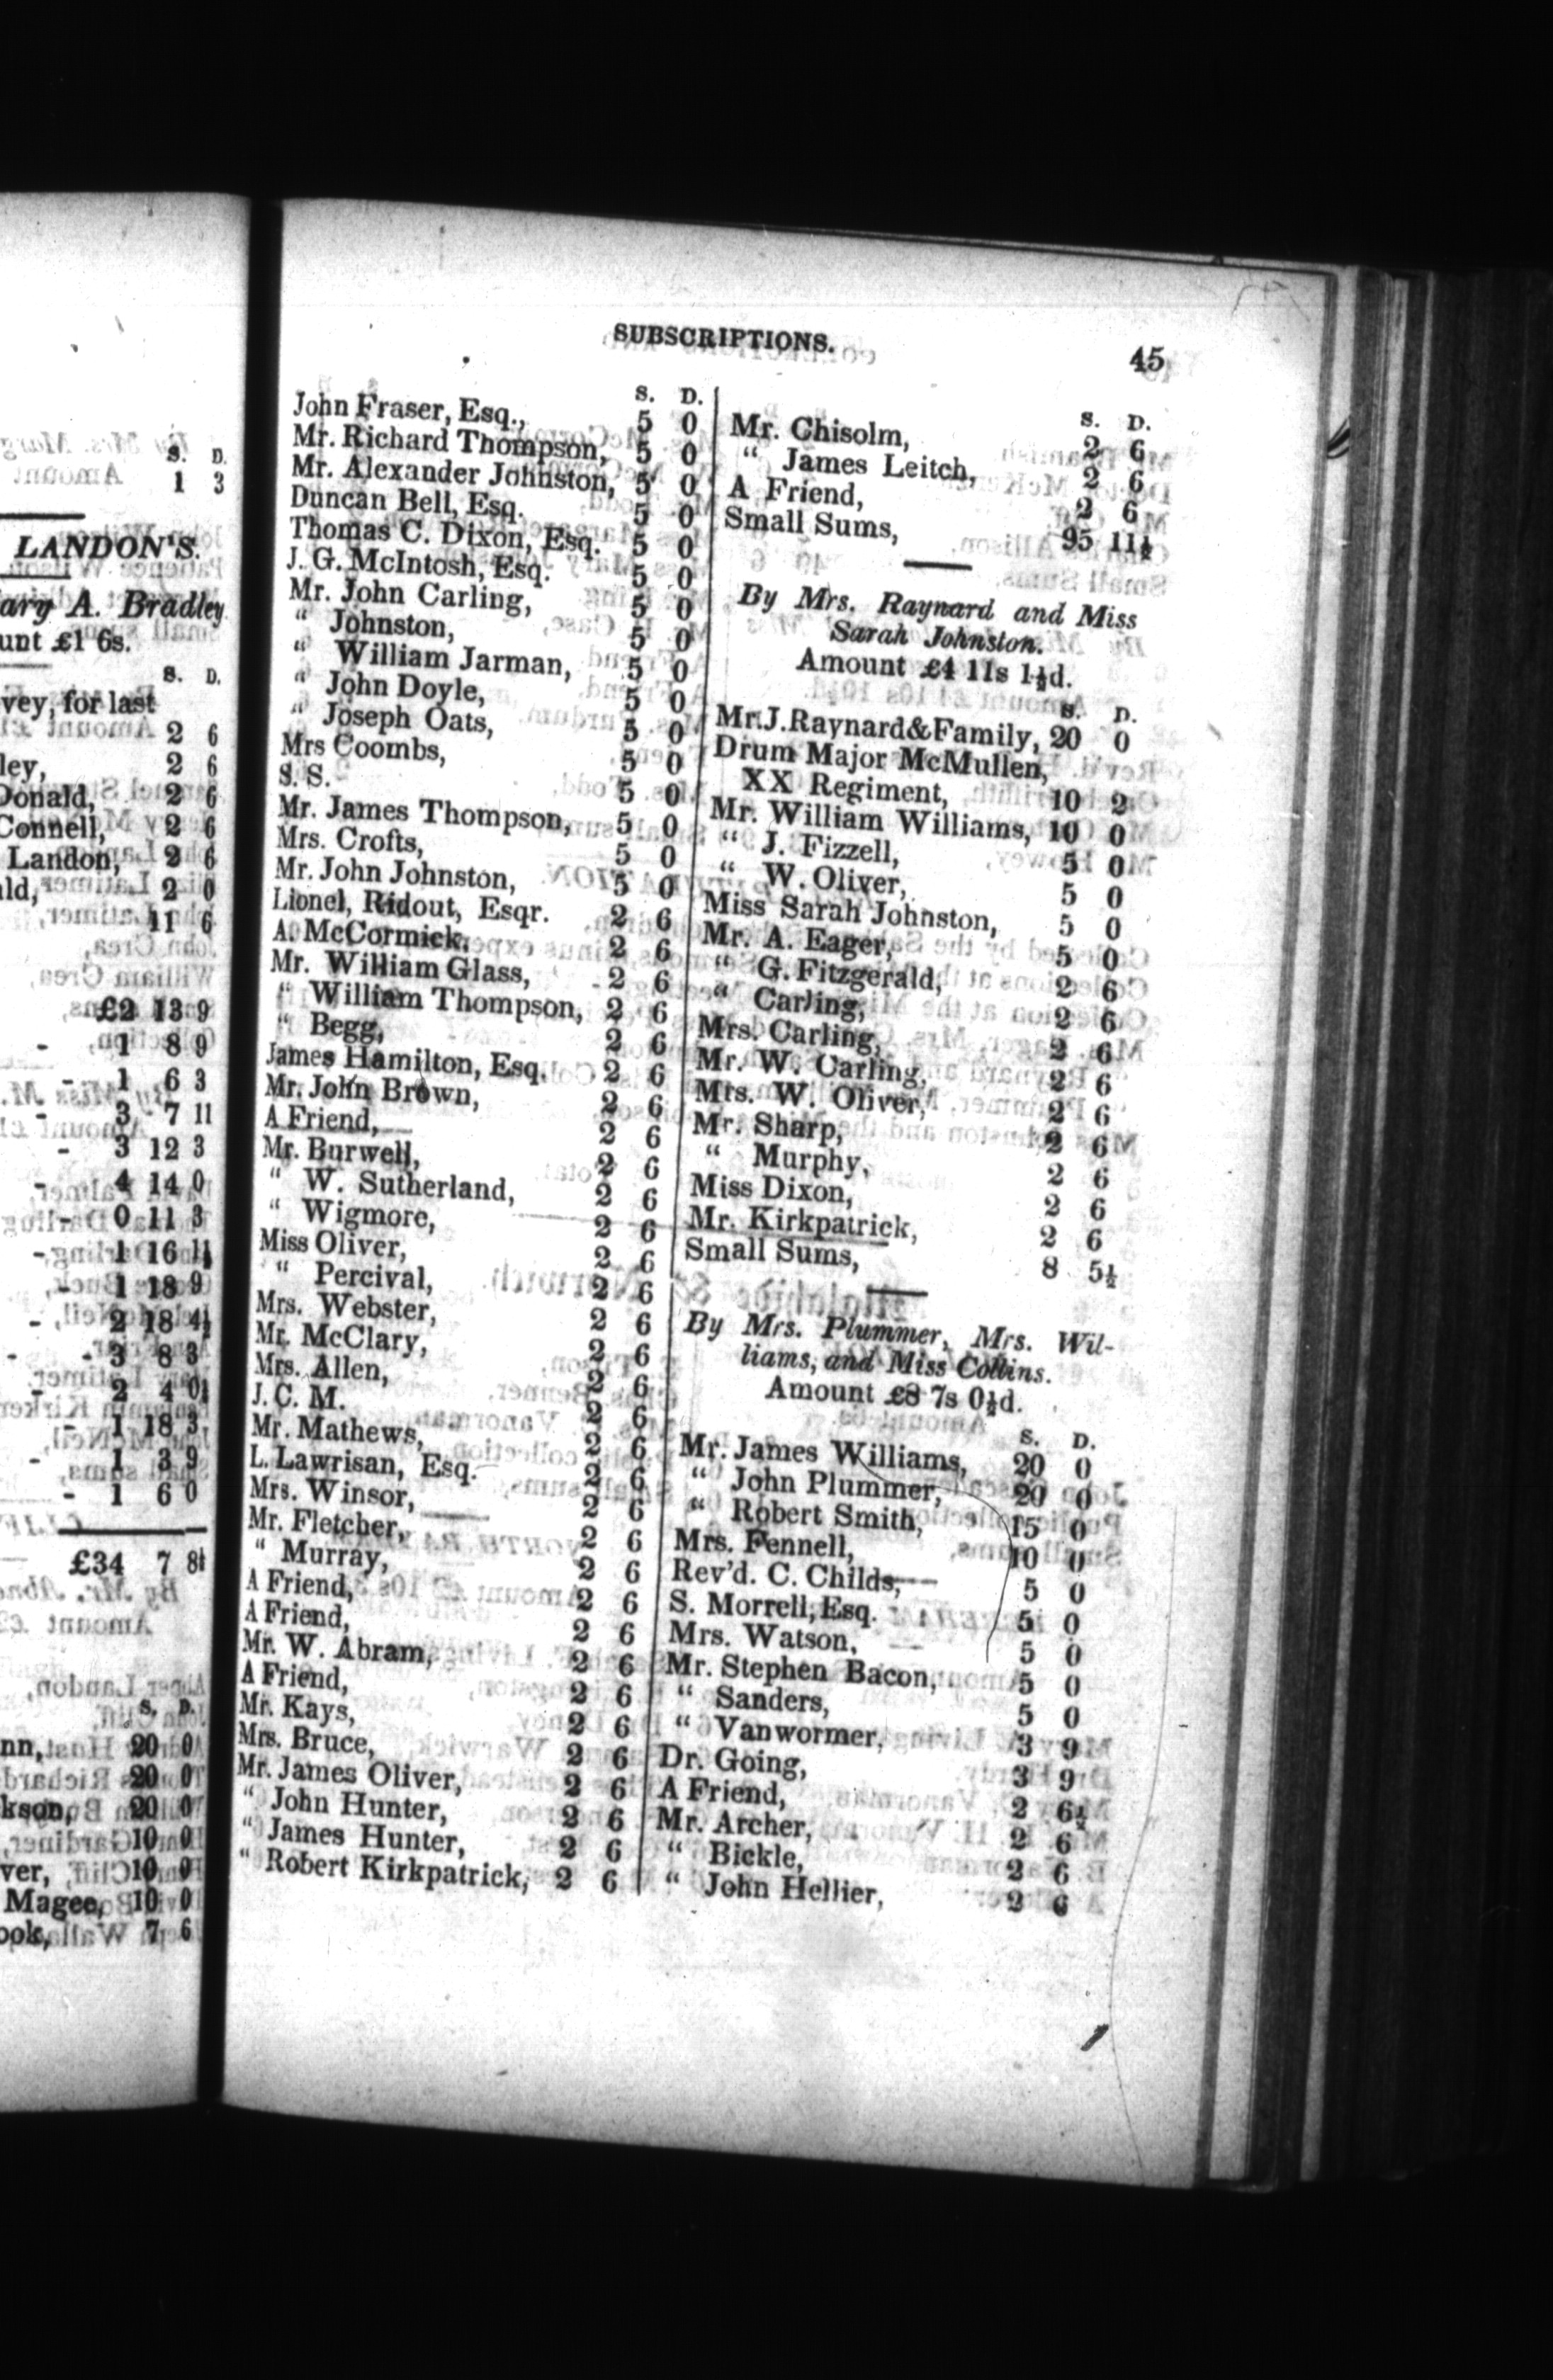 S. D.
1 3
LANDON'S.
ary A. Bradley
unt £1 6s.
S. D.
vey, for last
2 6
ley, 2 6
Donald, 2 6
Connell, 2 6
Landon, 2 6
ald, 2 0
11 6
£2 13 9
- 1 8 9
- 1 6 3
- 3 7 11
- 3 12 3
- 4 14 0
- 0 11 3
- 1 16 1½
1 18 9
- 2 18 4½
- - 3 8 3
- 2 4 0½
- 1 18 3
- 1 3 9
- 1 6 0
£34 7 8½
S. D.
nn, 20 0
20 0
kson, 20 0
10 0
ver, 10 0
Magee, 10 0
ook, 7 6
SUBSCRIPTIONS.
45
S. D.
John Fraser, Esq., 5 0
Mr. Richard Thompson, 5 0
Mr. Alexander Johnston, 5 0
Duncan Bell, Esq. 5 0
Thomas C. Dixon, Esq. 5 0
J. G. McIntosh, Esq. 5 0
Mr. John Carling, 5 0
“ Johnston, 5 0
“ William Jarman, 5 0
“ John Doyle, 5 0
“ Joseph Oats, 5 0
Mrs Coombs, 5 0
S. S. 5 0
Mr. James Thompson, 5 0
Mrs. Crofts, 5 0
Mr. John Johnston, 5 0
Lionel, Ridout, Esqr. 2 6
A. McCormick, 2 6
Mr. William Glass, 2 6
“ William Thompson, 2 6
“ Begg, 2 6
James Hamilton, Esq. 2 6
Mr. John Brown, 2 6
A Friend, 2 6
Mr. Burwell, 2 6
“ W. Sutherland, 2 6
“ Wigmore, 2 6
Miss Oliver, 2 6
“ Percival, 2 6
Mrs. Webster, 2 6
Mr. McClary, 2 6
Mrs. Allen, 2 6
J. C. M. 2 6
Mr. Mathews, 2 6
L. Lawrisan, Esq. 2 6
Mrs. Winsor, 2 6
Mr. Fletcher, 2 6
“ Murray, 2 6
A Friend, 2 6
A Friend, 2 6
Mr. W. Abram, 2 6
A Friend, 2 6
Mr. Kays, 2 6
Mrs. Bruce, 2 6
Mr. James Oliver, 2 6
“ John Hunter, 2 6
“ James Hunter, 2 6
“ Robert Kirkpatrick, 2 6
S. D.
Mr. Chisolm, 2 6
“ James Leitch, 2 6
A Friend, 2 6
Small Sums, 95 11½
By Mrs. Raynard and Miss
Sarah Johnston.
Amount £4 11s 1½d.
S. D.
Mr. J. Raynard & Family, 20 0
Drum Major McMullen,
XX Regiment, 10 2
Mr. William Williams, 10 0
“ J. Fizzell, 5 0
“ W. Oliver, 5 0
Miss Sarah Johnston, 5 0
Mr. A. Eager, 5 0
“ G. Fitzgerald, 2 6
“ Carling, 2 6
Mrs. Carling, 2 6
Mr. W. Carling, 2 6
Mrs. W. Oliver, 2 6
Mr. Sharp, 2 6
“ Murphy, 2 6
Miss Dixon, 2 6
Mr. Kirkpatrick, 2 6
Small Sums, 8 5½
By Mrs. Plummer, Mrs. Wil-
liams, and Miss Collins.
Amount £8 7s 0½d.
S. D.
Mr. James Williams, 20 0
“ John Plummer, 20 0
“ Robert Smith, 15 0
Mrs. Fennell, 10 0
Rev'd. C. Childs, 5 0
S. Morrell, Esq. 5 0
Mrs. Watson, 5 0
Mr. Stephen Bacon, 5 0
“ Sanders, 5 0
“ Vanwormer, 3 9
Dr. Going, 3 9
A Friend, 2 6½
Mr. Archer, 2 6
“ Bickle, 2 6
“ John Hellier, 2 6